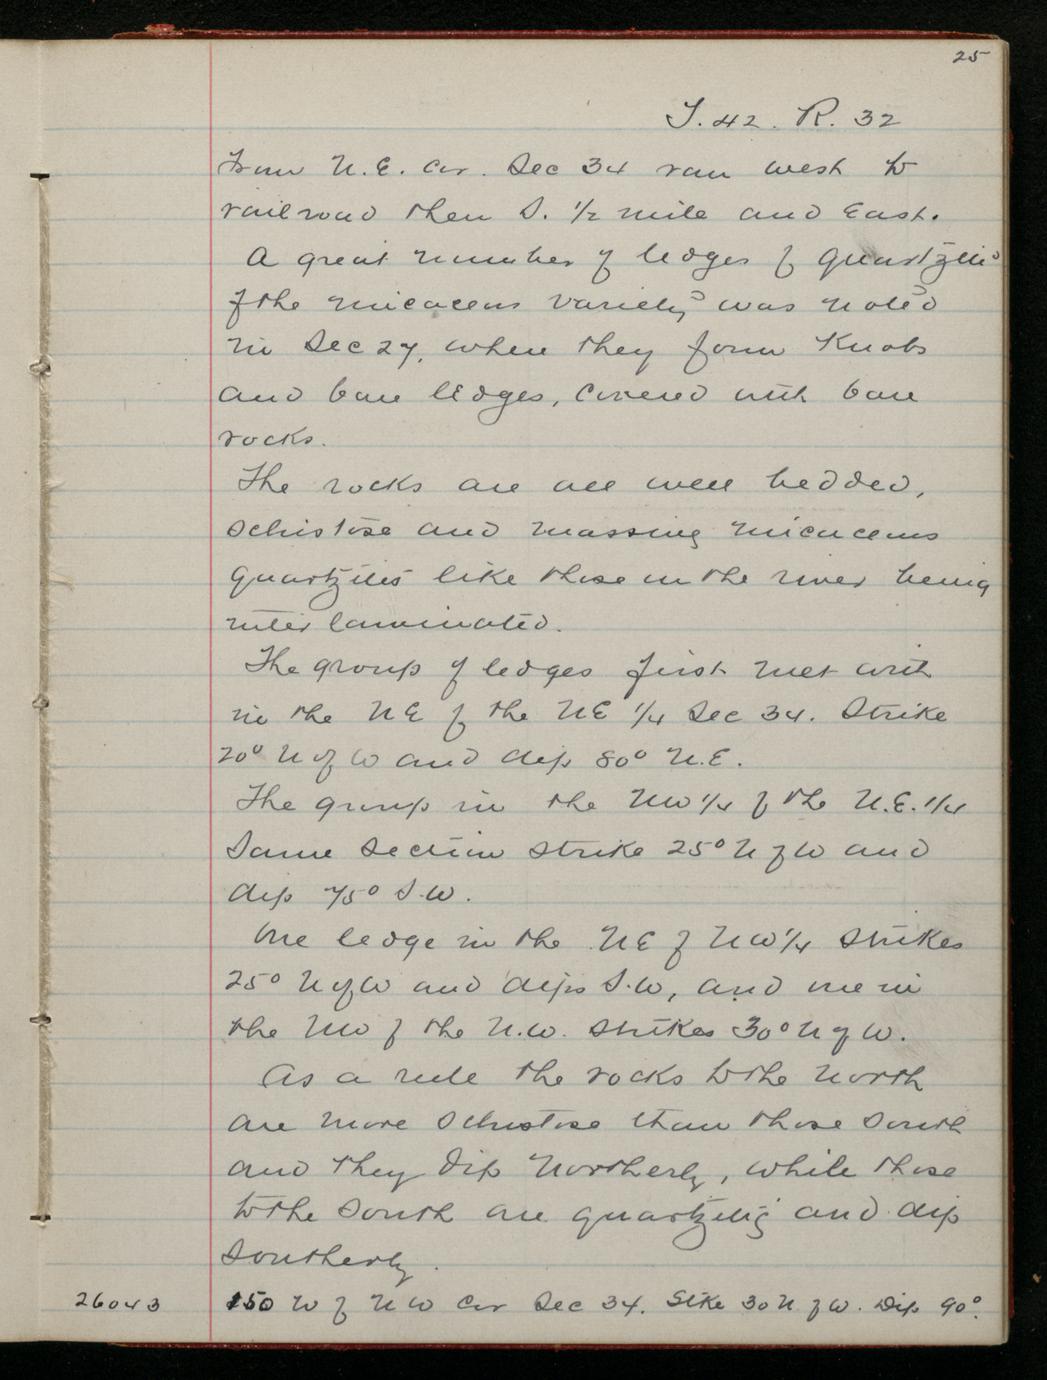 25
T. 42. R. 32
From N.E. Cor. Sec 34 ran west to
railroad then S. 1/2 mile and East.
A great number of ledges of quartzite
of the micaceous variety was noted
in Sec 27, where they form Knobs
and bare ledges, covered with bare
rocks.
The rocks are all well bedded,
schistose and massive micaceous
quartzites like those in the river being
inter laminated.
The group of ledges first met with
in the NE of the NE 1/4 Sec 34. Strike
20° N of W and dip 80° N.E.
The group in the NW 1/4 of the N.E. 1/4
Same Section strike 25° N of W and
dip 75° S.W.
One ledge in the NE of NW 1/4 strikes
25° N of W and dips S.W, and one in
the NW of the N.W. strikes 30° N of W.
As a rule the rocks to the North
are more schistose than those South
and they dip Northerly, while those
to the South are quartzitic and dip
Southerly.
26043 150 W of NW Cor Sec 34. Stke 30 N. of W. Dip 90°.